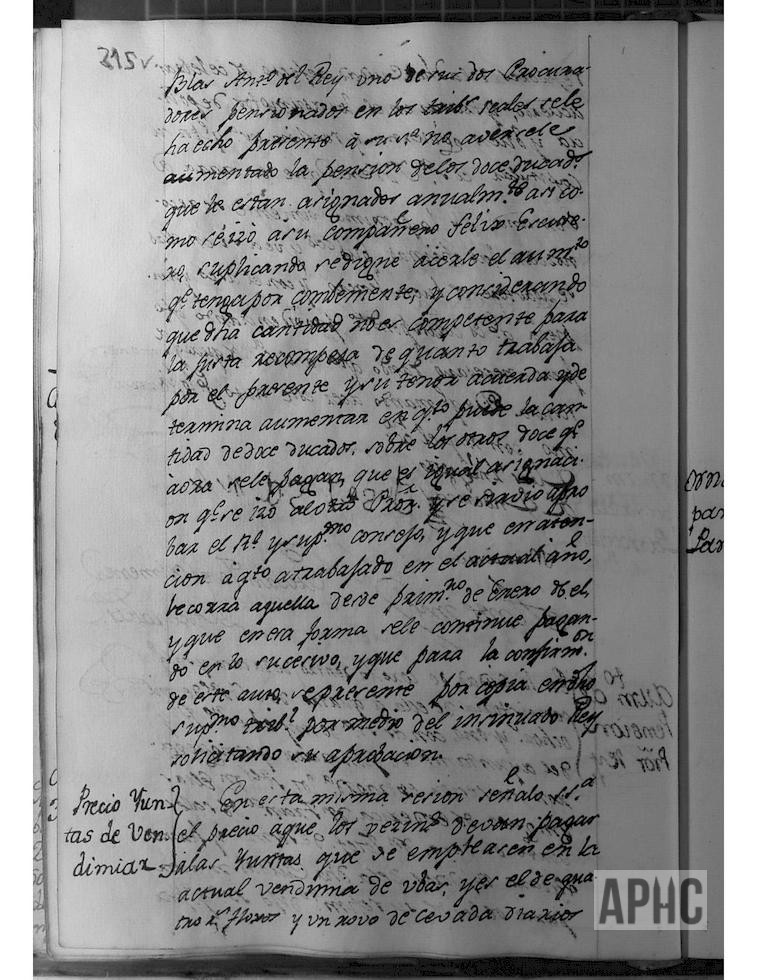 215v
Blas Antº del Rey uno de sus dos Procura-
dores pensionados en los tribˢ reales se le
ha echo presente à su sª no averse le
aumentado la pension de los doce ducadˢ
que le estan asignados anualmᵗᵉ asi co-
mo se izo a su compañero Felix Escude-
ro, suplicando se digne acerle el aumᵗº
qᵉ tenga por combeniente; y considerando
que dha cantidad no es competente para
la justa recompesa de quanto trabaja
por el presente y su tenor acuerda y de
termina aumentar en qᵗº puede la can-
tidad de doce ducados, sobre los otros doce qᵉ
aora se le pagan, que es igual asignaci-
on qᵉ se izo al otro Proʳ. y se sirvio apro
bar el Rˡ y supᵐº consejo, y que en aten-
cion a qᵗº a trabajado en el actual año,
le corra aquella desde primº de Enero de el,
y que en esa forma se le continue pagan-
do en lo sucesivo, y que para la confirmᵒⁿ
de este auto, se presente por copia en dho
supᵐº tribˡ por medio del insinuado Rey
solicitando su aprobacion.
Precio Yun-
tas de Ven-
dimiar
En esta misma sesion señalo s.sª
el precio a que los vezinˢ devan pagar
a las Yuntas que se emplearen en la
actual vendimia de ubas, y es el de qua
tro rˢ flojos y un rovo de cevada diarios
APHC